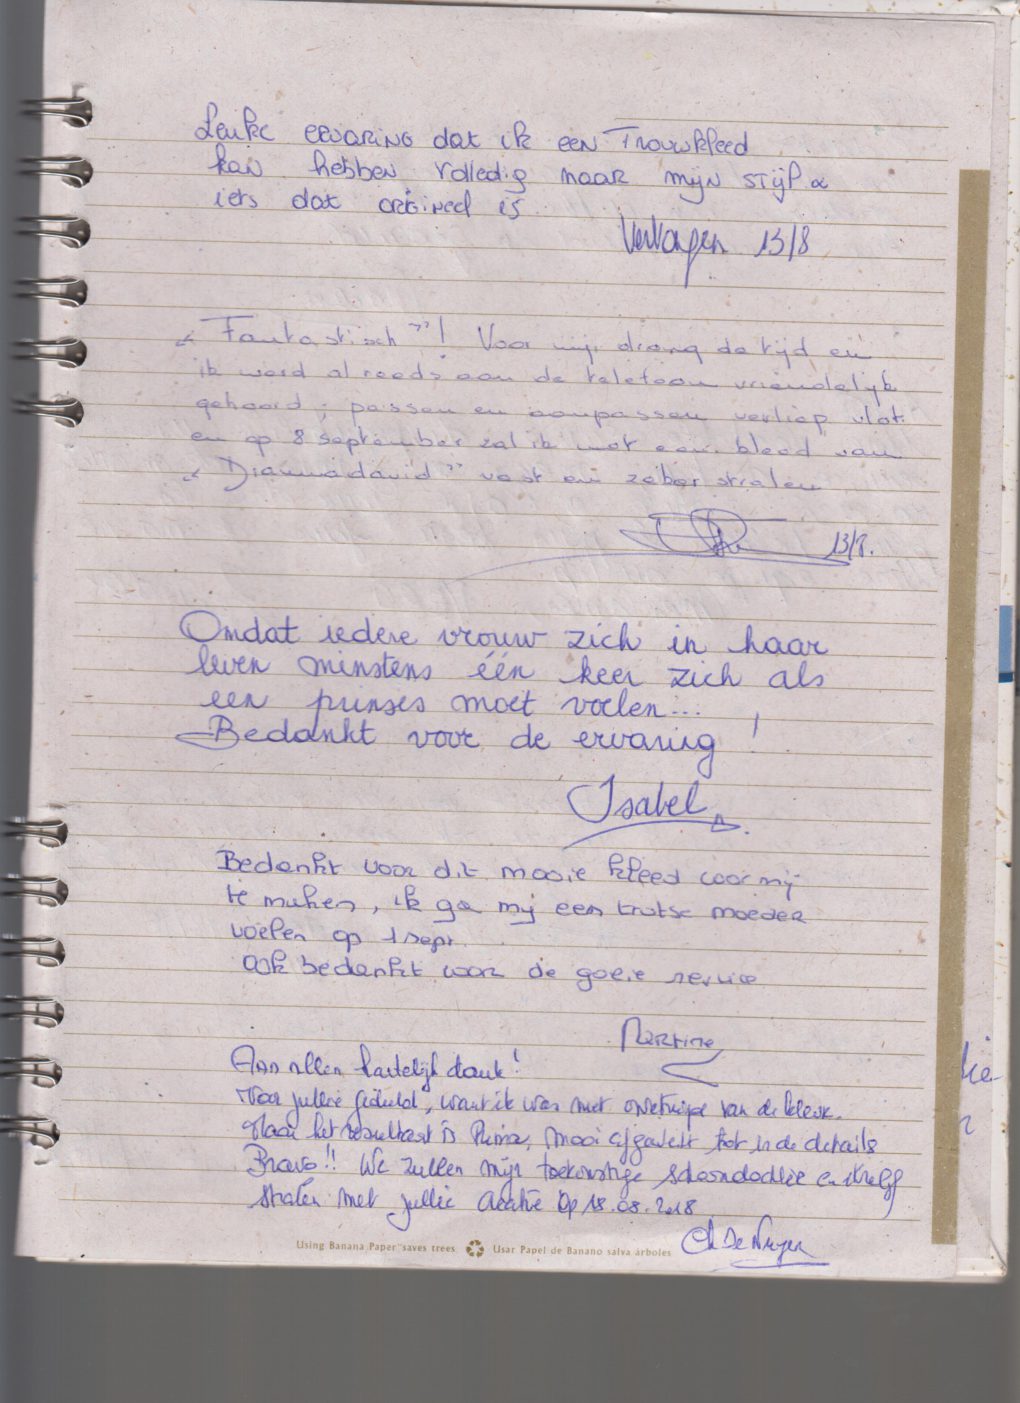 Leuke ervaring dat ik een Trouwkleed
kan hebben volledig naar mijn stijl &
iets dat orgineel is
Verhaegen 13/8
"Fantastisch"! Voor mij drong de tijd en
ik werd al reeds aan de telefoon vriendelijk
gehoord; passen en aanpassen verliep vlot
en op 8 september zal ik met een kleed van
"Diannadavid" vast en zeker stralen
13/8.
Omdat iedere vrouw zich in haar
leven minstens één keer zich als
een prinses moet voelen...
Bedankt voor de ervaring !
Isabel
Bedankt voor dit mooie kleed voor mij
te maken, ik ga mij een trotse moeder
voelen op 1 sept.
Ook bedankt voor de goeie service
Martine
Aan allen hartelijk dank!
Voor jullie geduld, want ik was niet van de
Maar het resultaat is Prima, mooi afgewerkt tot in de details
Bravo!! We zullen mijn toekomstige schoondochter en ikzelf
stralen met jullie creatie op 18.08.2018
De
Using Banana Paper saves trees Usar Papel de Banano salva árboles